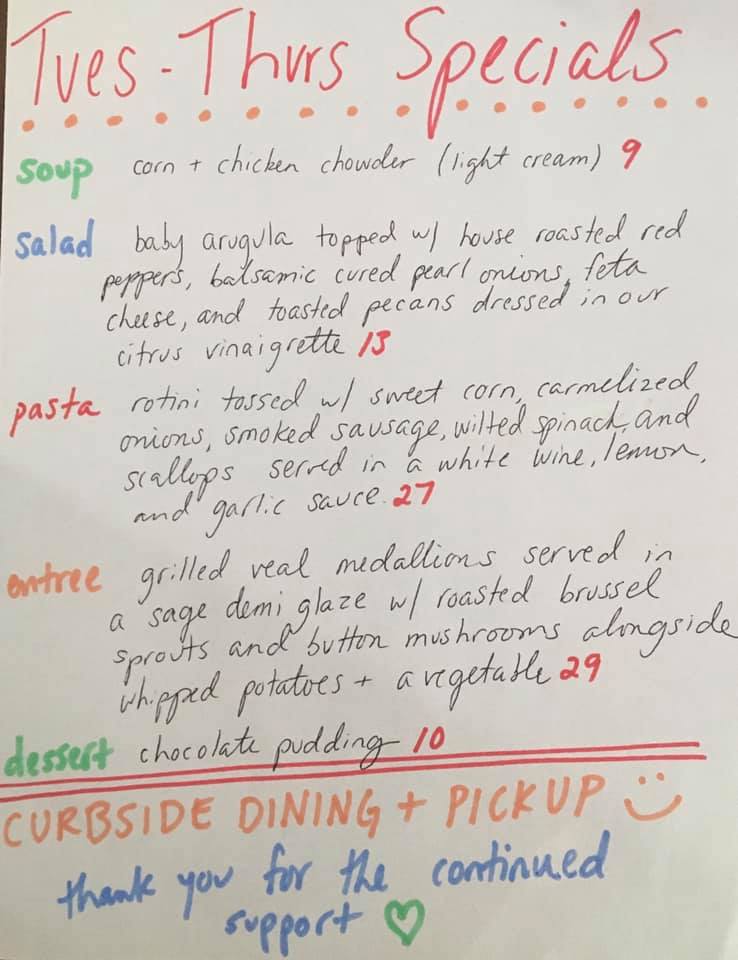 Tues - Thurs Specials
soup corn + chicken chowder (light cream) 9
salad baby arugula topped w/ house roasted red
peppers, balsamic cured pearl onions, feta
cheese, and toasted pecans dressed in our
citrus vinaigrette 13
pasta rotini tossed w/ sweet corn, carmelized
onions, smoked sausage, wilted spinach, and
scallops served in a white wine, lemon,
and garlic sauce. 27
entree grilled veal medallions served in
a sage demi glaze w/ roasted brussel
sprouts and button mushrooms alongside
whipped potatoes + a vegetable 29
dessert chocolate pudding 10
CURBSIDE DINING + PICKUP
thank you for the continued
support